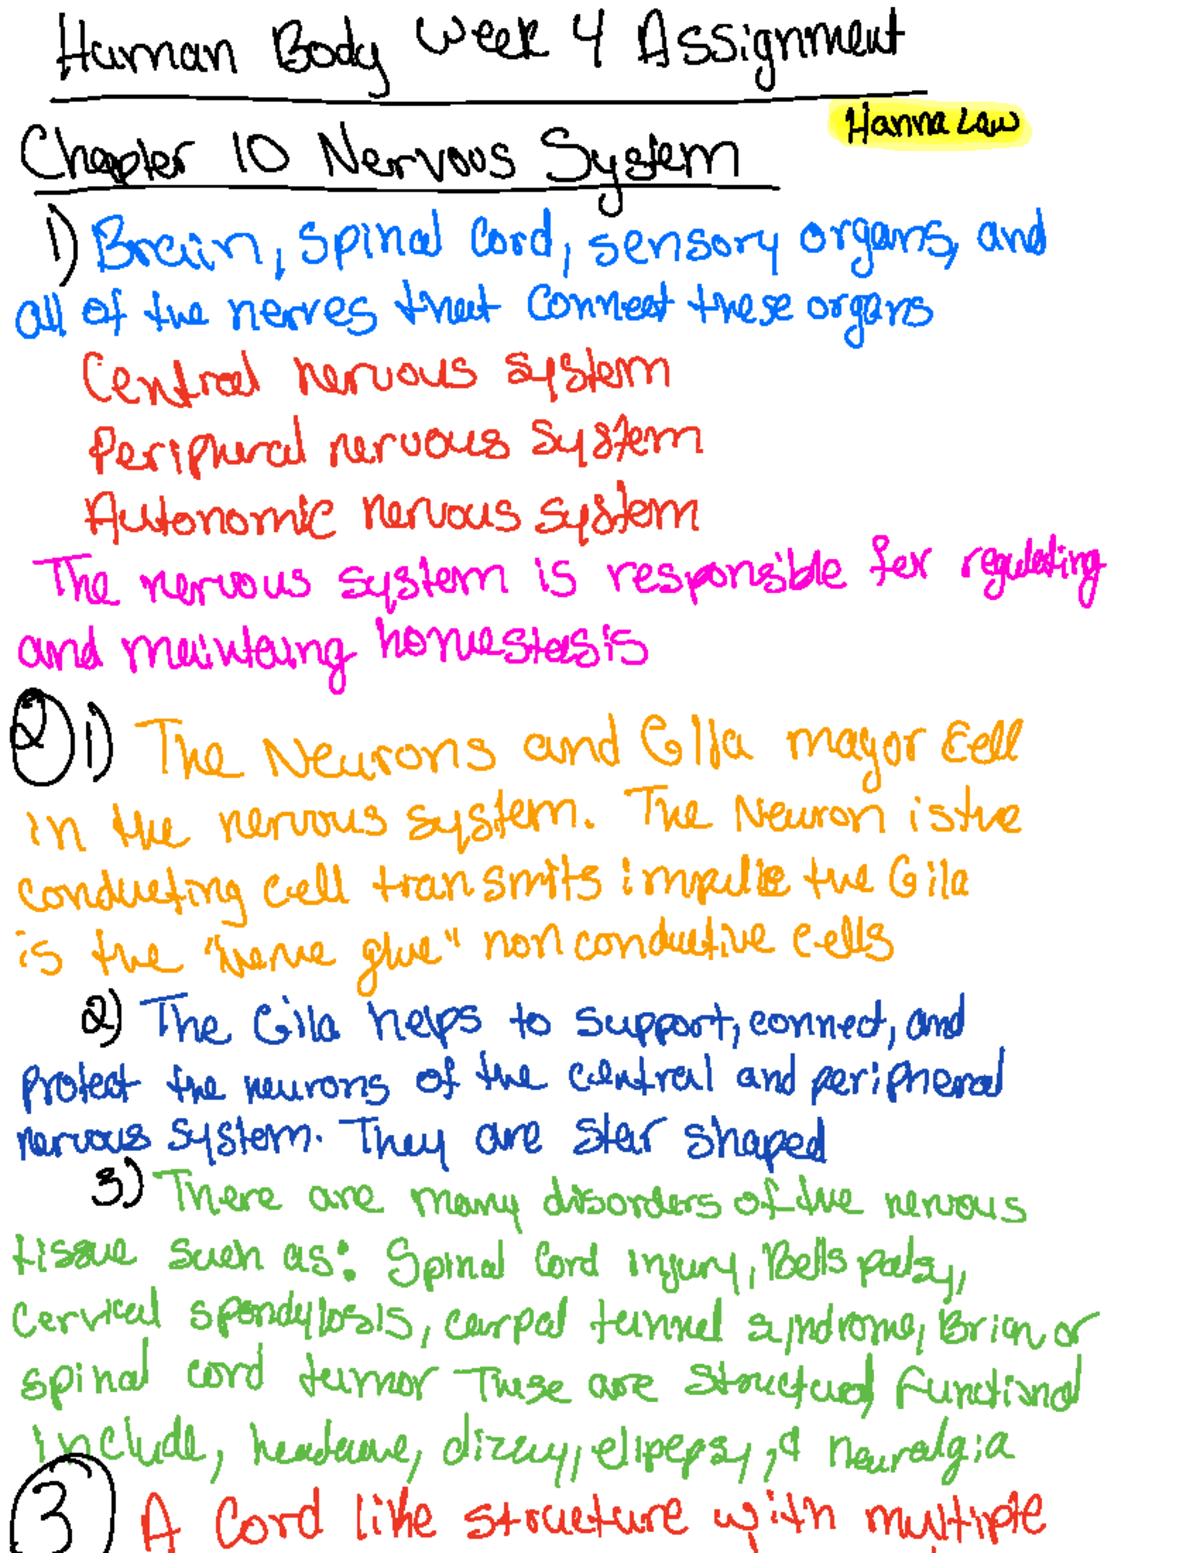 Human Body Week 4 Assignment
Hanna Law
Chapter 10 Nervous System
1) Brain, spinal cord, sensory organs, and
all of the nerves that connect these organs
Central nervous system
Peripheral nervous system
Autonomic nervous system
The nervous system is responsible for regulating
and maintaing homestasis
2 1) The Neurons and Glia mayor cell
in the nervous system. The Neuron is the
conducting cell transmits impulse the Gila
is the "nerve glue" non conductive cells
2) The Gila helps to support, connect, and
protect the neurons of the central and peripheral
nervous system. They are star shaped
3) There are many disorders of the nervous
tissue such as: Spinal Cord injury, Bells palsy,
cervical spondylosis, carpal tunnel syndrome, Brian or
spinal cord tumor These are structual, functional
include, headache, dizzy, elipepsy, & neuralgia
3 A Cord like structure with multiple